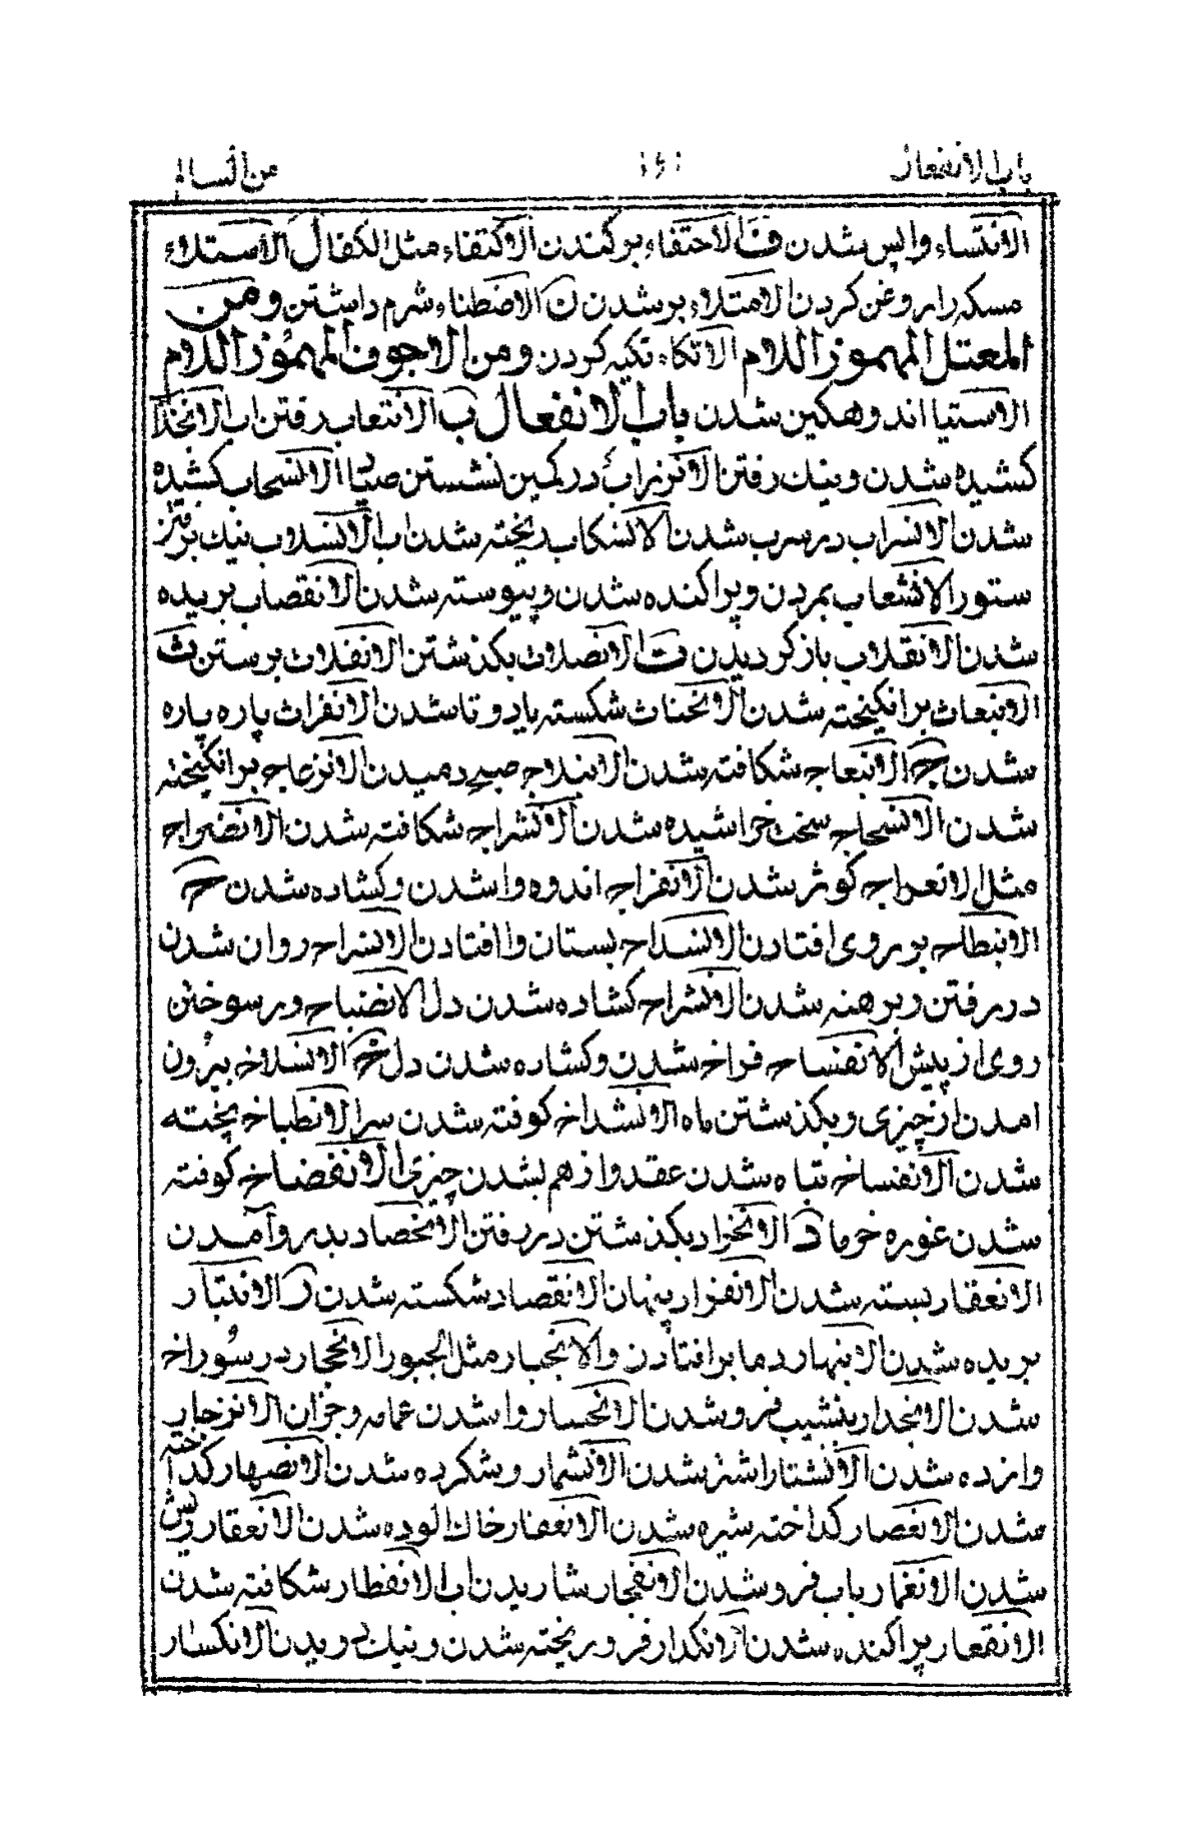 باب الانفعال من السالم
الانتساء واپس شدن ف الاحتفاء برکندن الاکتفاء مثل الکفال الاستلاء
مسکه را روغن کردن الامتلاء پر شدن ن الاضطناء شرم داشتن ومن
المعتل المهموز اللام الاتکاء تکیه کردن ومن الاجوف المهموز اللام
الاستیا اندوهکین شدن باب الانفعال ب الانثعاب رفتن اب الانجذاب
کشیده شدن ونیك رفتن الانزراب در کمین نشستن صیاد الانسحاب کشیده
شدن الانسراب در سرب شدن الانسکاب ریخته شدن اب الانسلاب نیك برفتن
ستور الانشعاب بمردن وپراکنده شدن وپیوسته شدن الانقضاب بریده
شدن الانقلاب بازکردیدن ت الانصلات بکذشتن الانفلات برستن ث
الانبعاث برانکیخته شدن الانخناث شکسته یا دوتا شدن الانفراث پاره پاره
شدن ج الانبعاج شکافته شدن الانبلاج صبح دمیدن الانزعاج برانکیخته
شدن الانسحاج سخت خراشیده شدن الانشراج شکافته شدن الانضراج
مثل الانعراج کوژ شدن الانفراج اندوه وا شدن وکشاده شدن ح
الانبطاح بر روی افتادن الانسداح بستان وا افتادن الانسراح روان شدن
در رفتن وبرهنه شدن الانشراح کشاده شدن دل الانضباح ورسوختن
روی از پیش الانفساح فراخ شدن وکشاده شدن دل خ الانسلاخ بیرون
امدن از چیزی وبکذشتن ماه الانشداخ کوفته شدن سر الانطباخ پخته
شدن الانفساخ تباه شدن عقد واز هم بشدن چیزی الانفضاخ کوفته
شدن غوره خرما د الانجراد بکذشتن در رفتن الانحصاد بدرو آمدن
الانعقاد بسته شدن الانفراد پنهان الانقصاد شکسته شدن ر الانبتار
بریده شدن الانبهار دما برافتادن والانجبار مثل الجبور الانجحار در سوراخ
شدن الانحدار بنشیب فرو شدن الانحسار وا شدن عمامه وجزان الانزجار
وازده شدن الانشتار اشتر شدن الانشمار وشکرده شدن الانصهار کداخته
شدن الانعصار کداخته شیره شدن الانعفار خاك الوده شدن الانعقار ریش
شدن الانغمار باب فرو شدن الانفجار شاریدن اب الانفطار شکافته شدن
الانقعار پراکنده شدن الانکدار فرو ریخته شدن ونیك دویدن الانکسار